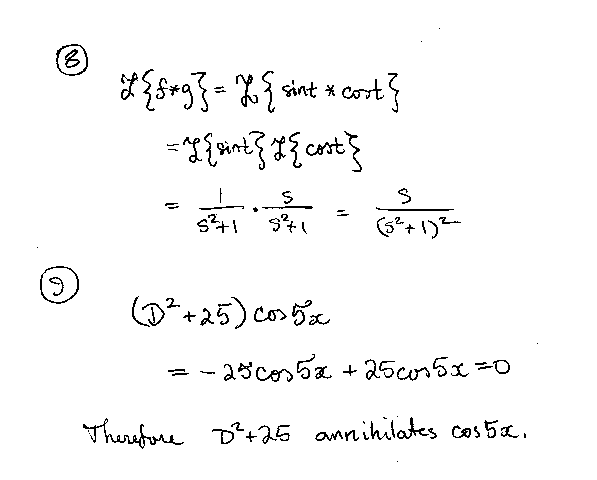 ⑧
ℒ{f*g} = ℒ{sint * cost}
= ℒ{sint} ℒ{cost}
= 1/(s²+1) · s/(s²+1) = s/(s²+1)²
⑨
(D²+25) cos5x
= -25cos5x + 25cos5x = 0
Therefore D²+25 annihilates cos5x.